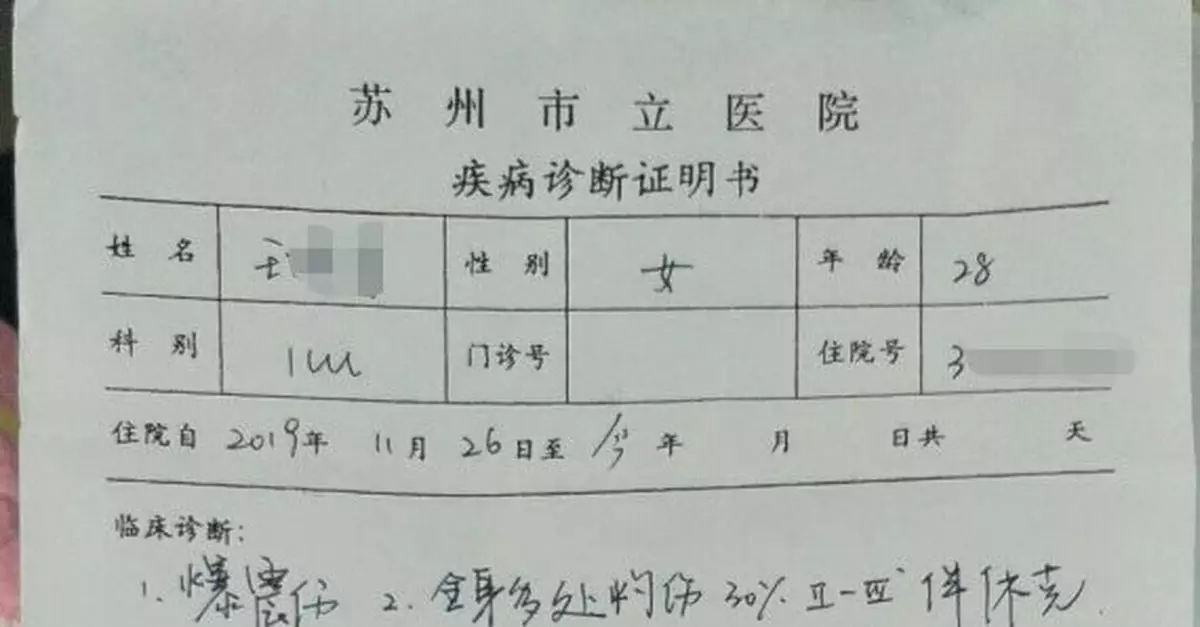 苏州市立医院
疾病诊断证明书
姓名 王 性别 女 年龄 28
科别 ICU 门诊号 住院号 3
住院自 2019年 11月 26日至 今 年 月 日共 天
临床诊断:
1. 爆震伤 2. 全身多处灼伤 30% Ⅱ-Ⅲ° 伴休克